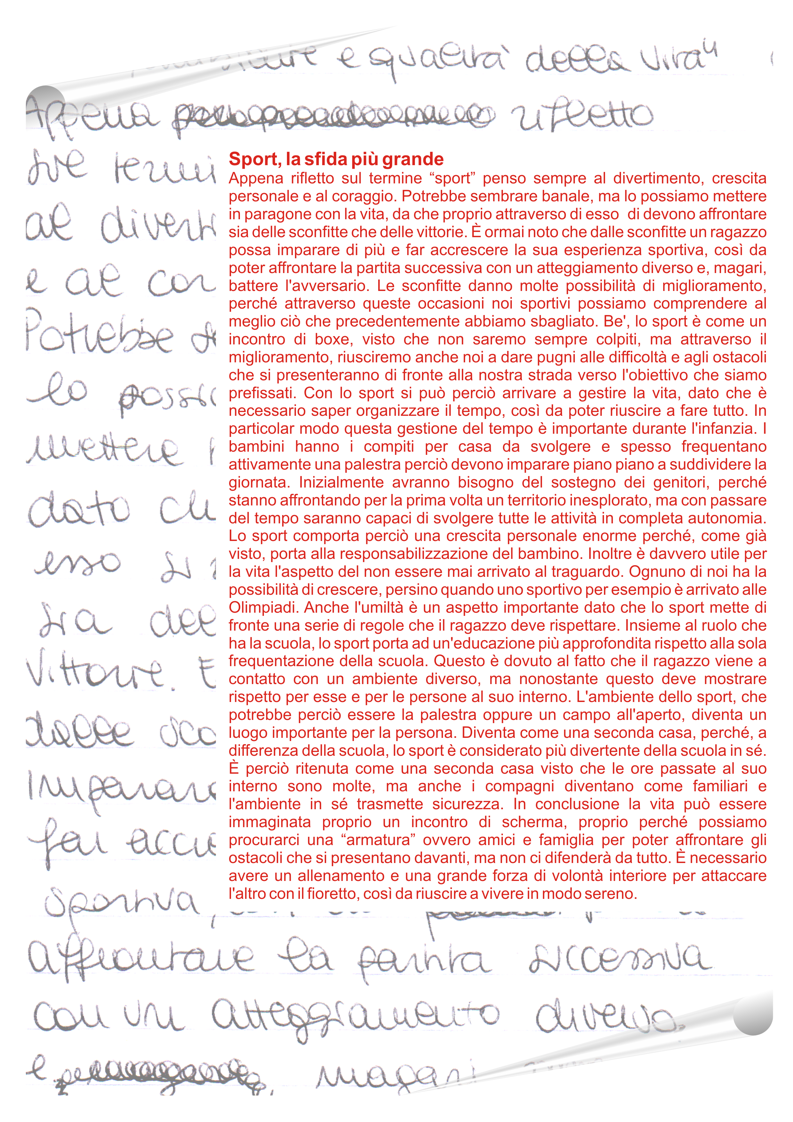 e qualità della vita"
Appena rifletto
sul termi
al divert
e al cor
Potrebbe
lo possi
mettere
dato ch
esso si
sia del
vittorie. E
dalle sco
imparare
far accre
Sport, la sfida più grande
Appena rifletto sul termine “sport” penso sempre al divertimento, crescita
personale e al coraggio. Potrebbe sembrare banale, ma lo possiamo mettere
in paragone con la vita, da che proprio attraverso di esso di devono affrontare
sia delle sconfitte che delle vittorie. È ormai noto che dalle sconfitte un ragazzo
possa imparare di più e far accrescere la sua esperienza sportiva, così da
poter affrontare la partita successiva con un atteggiamento diverso e, magari,
battere l'avversario. Le sconfitte danno molte possibilità di miglioramento,
perché attraverso queste occasioni noi sportivi possiamo comprendere al
meglio ciò che precedentemente abbiamo sbagliato. Be', lo sport è come un
incontro di boxe, visto che non saremo sempre colpiti, ma attraverso il
miglioramento, riusciremo anche noi a dare pugni alle difficoltà e agli ostacoli
che si presenteranno di fronte alla nostra strada verso l'obiettivo che siamo
prefissati. Con lo sport si può perciò arrivare a gestire la vita, dato che è
necessario saper organizzare il tempo, così da poter riuscire a fare tutto. In
particolar modo questa gestione del tempo è importante durante l'infanzia. I
bambini hanno i compiti per casa da svolgere e spesso frequentano
attivamente una palestra perciò devono imparare piano piano a suddividere la
giornata. Inizialmente avranno bisogno del sostegno dei genitori, perché
stanno affrontando per la prima volta un territorio inesplorato, ma con passare
del tempo saranno capaci di svolgere tutte le attività in completa autonomia.
Lo sport comporta perciò una crescita personale enorme perché, come già
visto, porta alla responsabilizzazione del bambino. Inoltre è davvero utile per
la vita l'aspetto del non essere mai arrivato al traguardo. Ognuno di noi ha la
possibilità di crescere, persino quando uno sportivo per esempio è arrivato alle
Olimpiadi. Anche l'umiltà è un aspetto importante dato che lo sport mette di
fronte una serie di regole che il ragazzo deve rispettare. Insieme al ruolo che
ha la scuola, lo sport porta ad un'educazione più approfondita rispetto alla sola
frequentazione della scuola. Questo è dovuto al fatto che il ragazzo viene a
contatto con un ambiente diverso, ma nonostante questo deve mostrare
rispetto per esse e per le persone al suo interno. L'ambiente dello sport, che
potrebbe perciò essere la palestra oppure un campo all'aperto, diventa un
luogo importante per la persona. Diventa come una seconda casa, perché, a
differenza della scuola, lo sport è considerato più divertente della scuola in sé.
È perciò ritenuta come una seconda casa visto che le ore passate al suo
interno sono molte, ma anche i compagni diventano come familiari e
l'ambiente in sé trasmette sicurezza. In conclusione la vita può essere
immaginata proprio un incontro di scherma, proprio perché possiamo
procurarci una “armatura” ovvero amici e famiglia per poter affrontare gli
ostacoli che si presentano davanti, ma non ci difenderà da tutto. È necessario
avere un allenamento e una grande forza di volontà interiore per attaccare
l'altro con il fioretto, così da riuscire a vivere in modo sereno.
sportiva,
affrontare la partita successiva
con un atteggiamento diverso
e magari